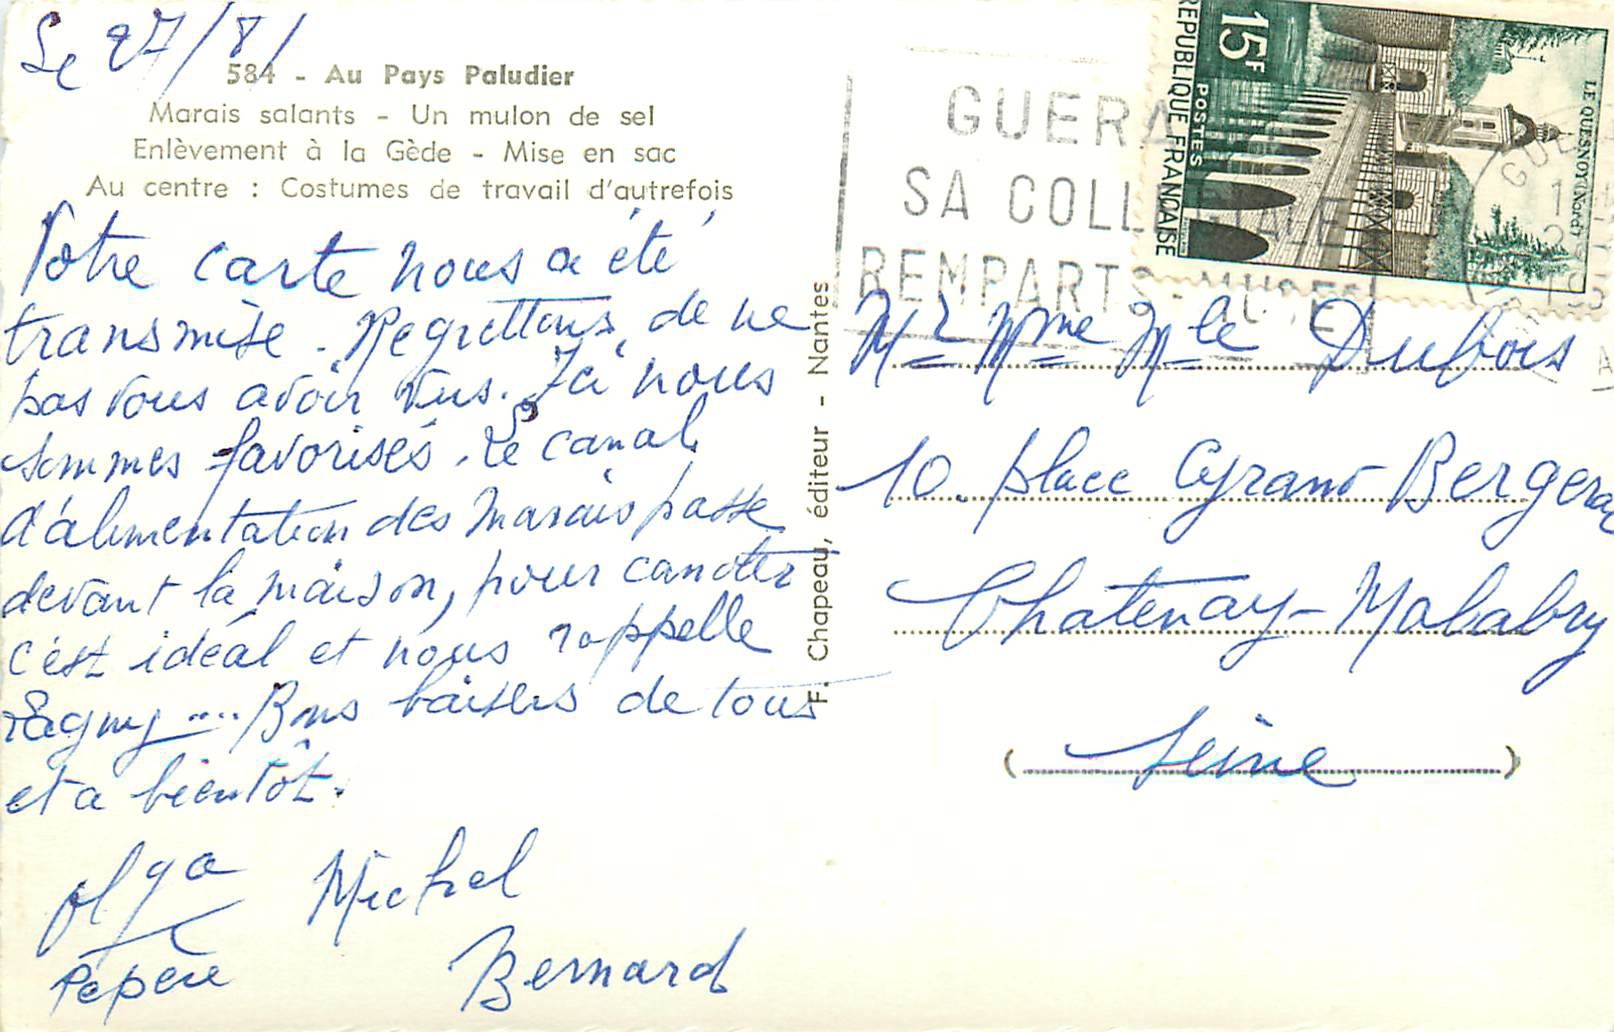 Le 27/8/
584 - Au Pays Paludier
Marais salants - Un mulon de sel
Enlèvement à la Gède - Mise en sac
Au centre : Costumes de travail d'autrefois
Votre carte nous a été
transmise. Regrettons de ne
pas vous avoir vus. Ici nous
sommes favorisés. Le canal
d'alimentation des Marais passe
devant la maison, pour canoter
c'est idéal et nous rappelle
.... Bons baisers de tous
et a bientôt.
Olga Michel
Pépère Bernard
F. Chapeau, éditeur - Nantes
GUERA
SA COLL IALE
REMPARTS - MUSEE
15F
POSTES
REPUBLIQUE FRANÇAISE
LE QUESNOY (Nord)
Mr Mme Mlle Dubois
10. place Cyrano Bergerac
Chatenay-Malabry
(Seine)